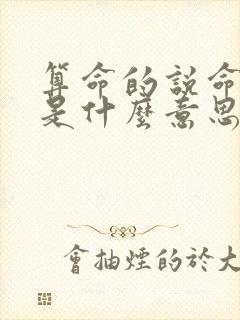 算命的説命
是什麼意思
會抽煙的於大